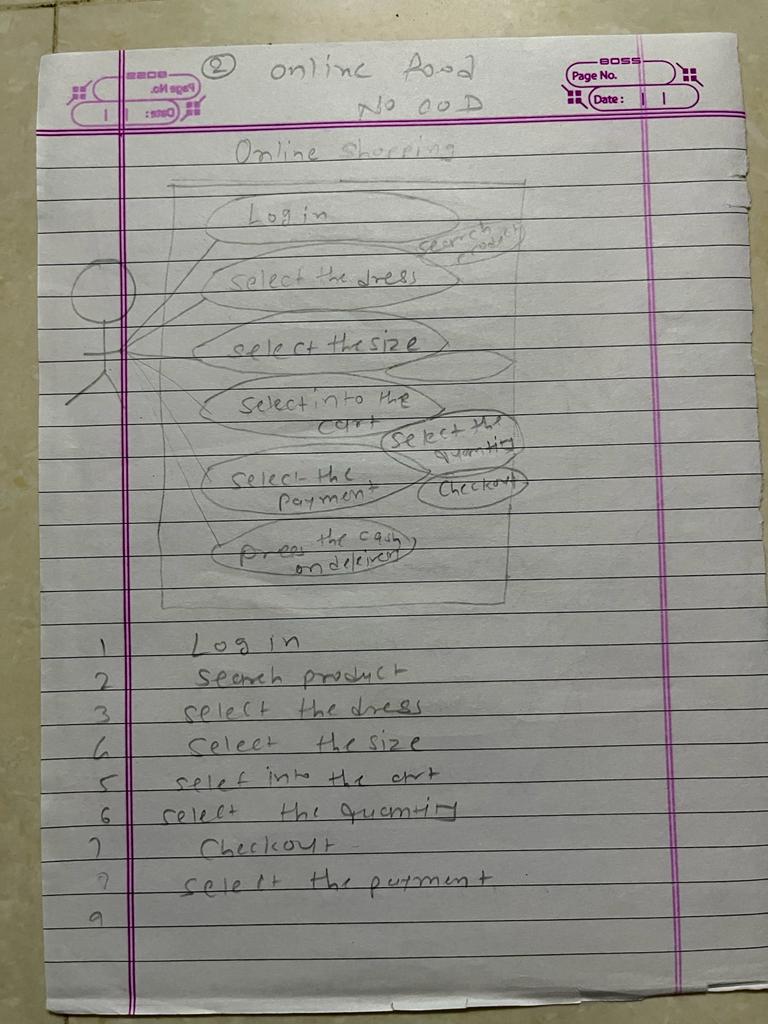 ② online food
No COD
BOSS
Page No.
Date:
Online Shopping
Login
search product
select the dress
select the size
Select into the cart
Select the Quantity
select the payment
Checkout
press the cash on delivery
1 Log in
2 Search product
3 select the dress
4 Select the size
5 selet into the cart
6 select the Quantity
7 Checkout
8 select the payment
9